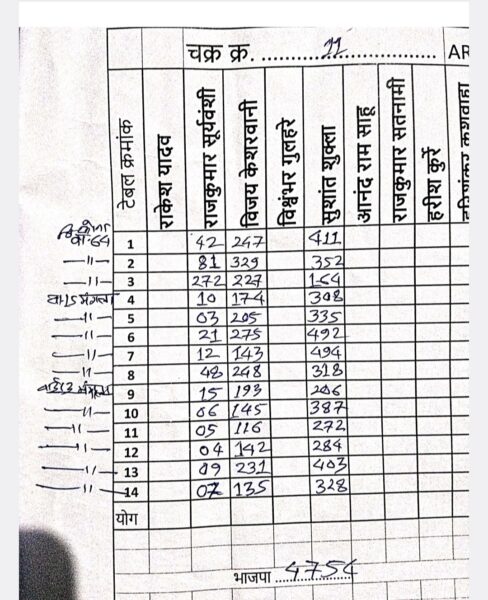 चक्र क्र. 11 AR
टेबल क्रमांक राकेश यादव राजकुमार सूर्यवंशी विजय केशरवानी विश्वंभर गुलहरे सुशांत शुक्ला आनंद राम साहू राजकुमार सतनामी हरीश कुर्रे
वा-64 1 42 247 411
—〃— 2 81 329 352
—〃 3 272 227 164
वा-15 मंगला 4 10 174 308
—〃 5 03 205 335
—〃 6 21 275 492
—〃 7 12 143 494
〃 8 48 248 318
मंगला 9 15 193 206
—〃 10 06 145 387
—〃— 11 05 116 272
—〃 12 04 142 284
—〃— 13 09 231 403
—〃— 14 07 135 328
योग
भाजपा 4754